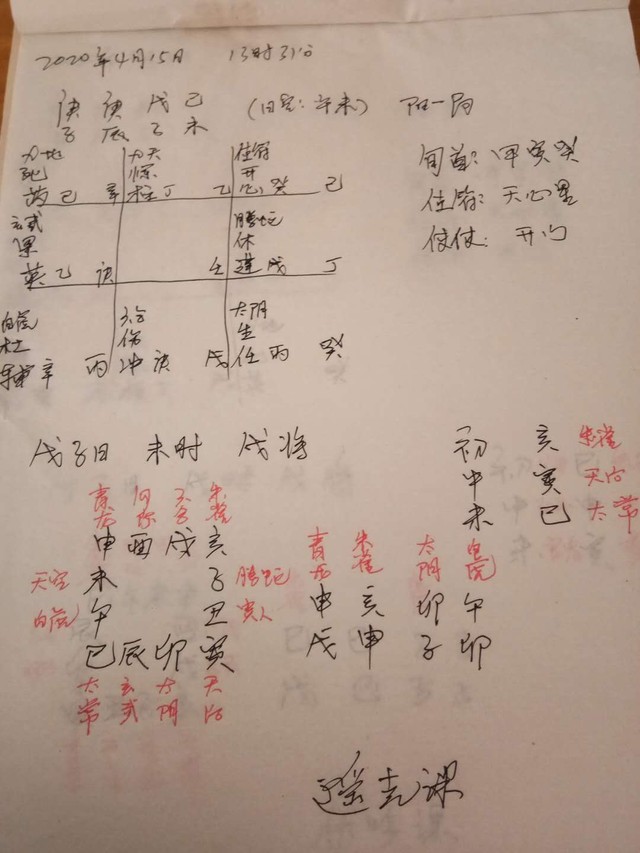 2020年4月15日 13时31分
庚 庚 戊 己 (日空:午未) 阳一局
子 辰 子 未
旬首:甲寅癸
值符:天心星
值使:开门
九地 九天 值符
死 惊 开
芮 己 辛 柱 丁 乙 心 癸 己
玄武 腾蛇
景 休
英 乙 庚 壬 蓬 戊 丁
白虎 六合 太阴
杜 伤 生
辅 辛 丙 冲 庚 戊 任 丙 癸
戊子日 未时 戌将
初 亥 朱雀
中 寅 天后
末 巳 太常
青龙 勾陈 六合 朱雀
申 酉 戌 亥
天空 未 子 腾蛇
白虎 午 丑 贵人
巳 辰 卯 寅
太常 玄武 太阴 天后
青龙 朱雀 太阴 白虎
申 亥 卯 午
戊 申 子 卯
遥克课